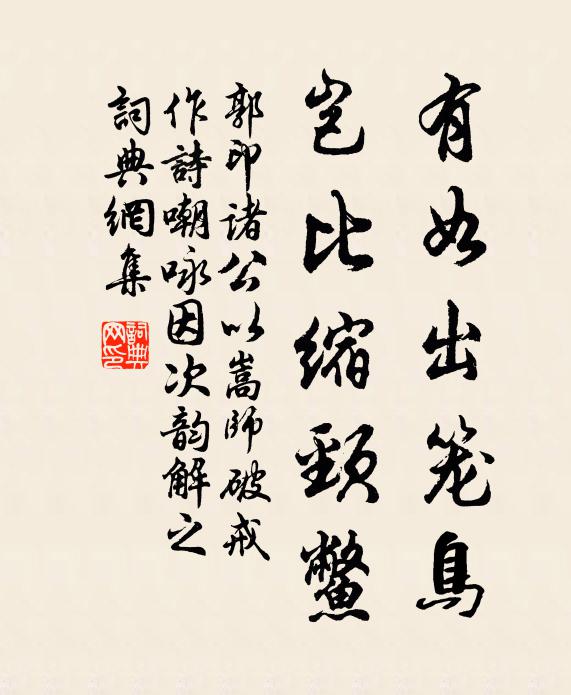 有如出笼鳥
岂比缩頸鱉
郭印诸公以嵩師破戒
作詩嘲咏因次韵解之
詞典網集
詞典网印